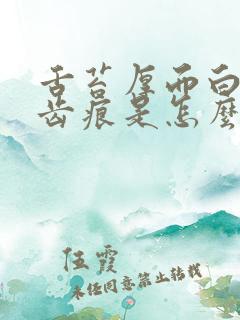 舌苔厚而白
齿痕是怎麽
伍霞
未经同意禁止转载